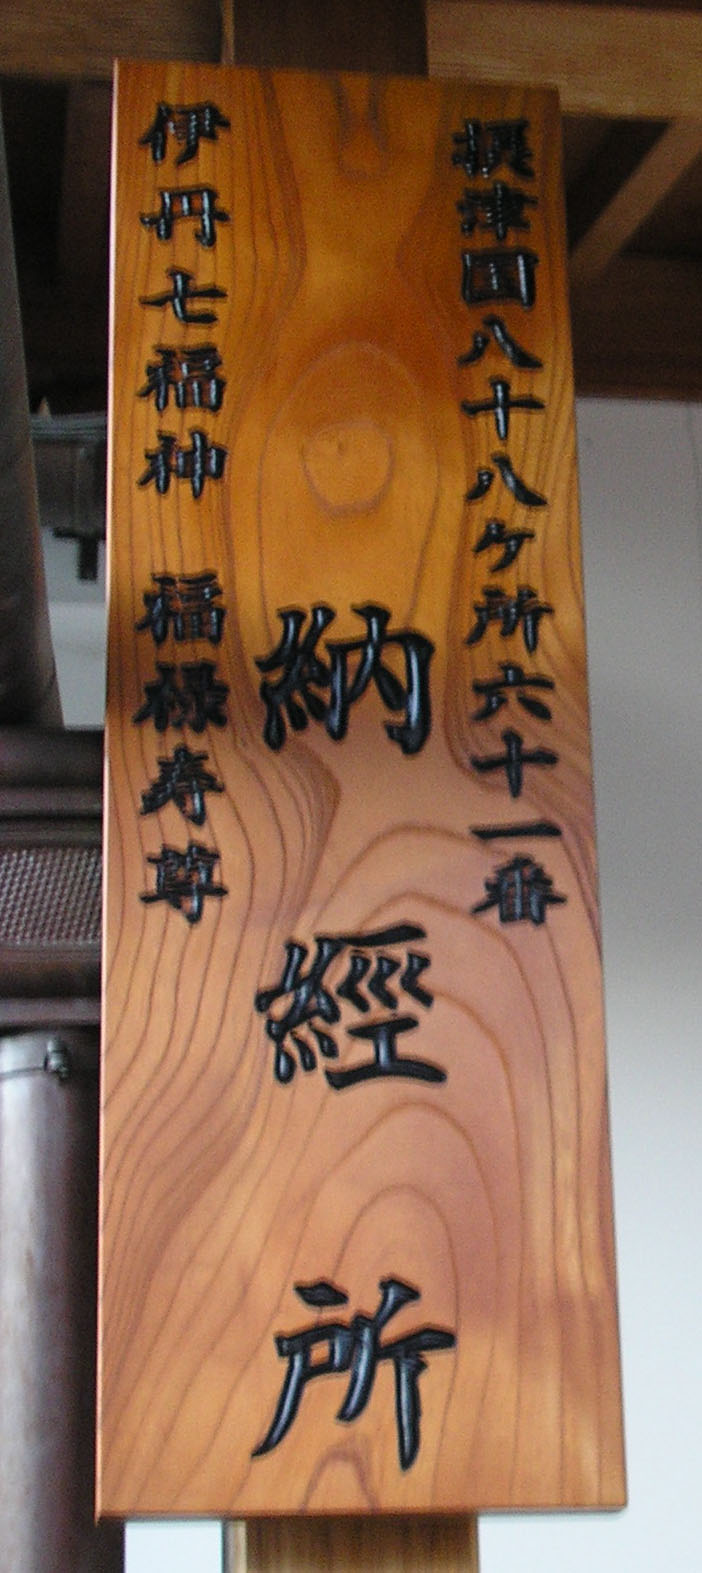 摂津国八十八ケ所六十一番
納經所
伊丹七福神 福禄寿尊